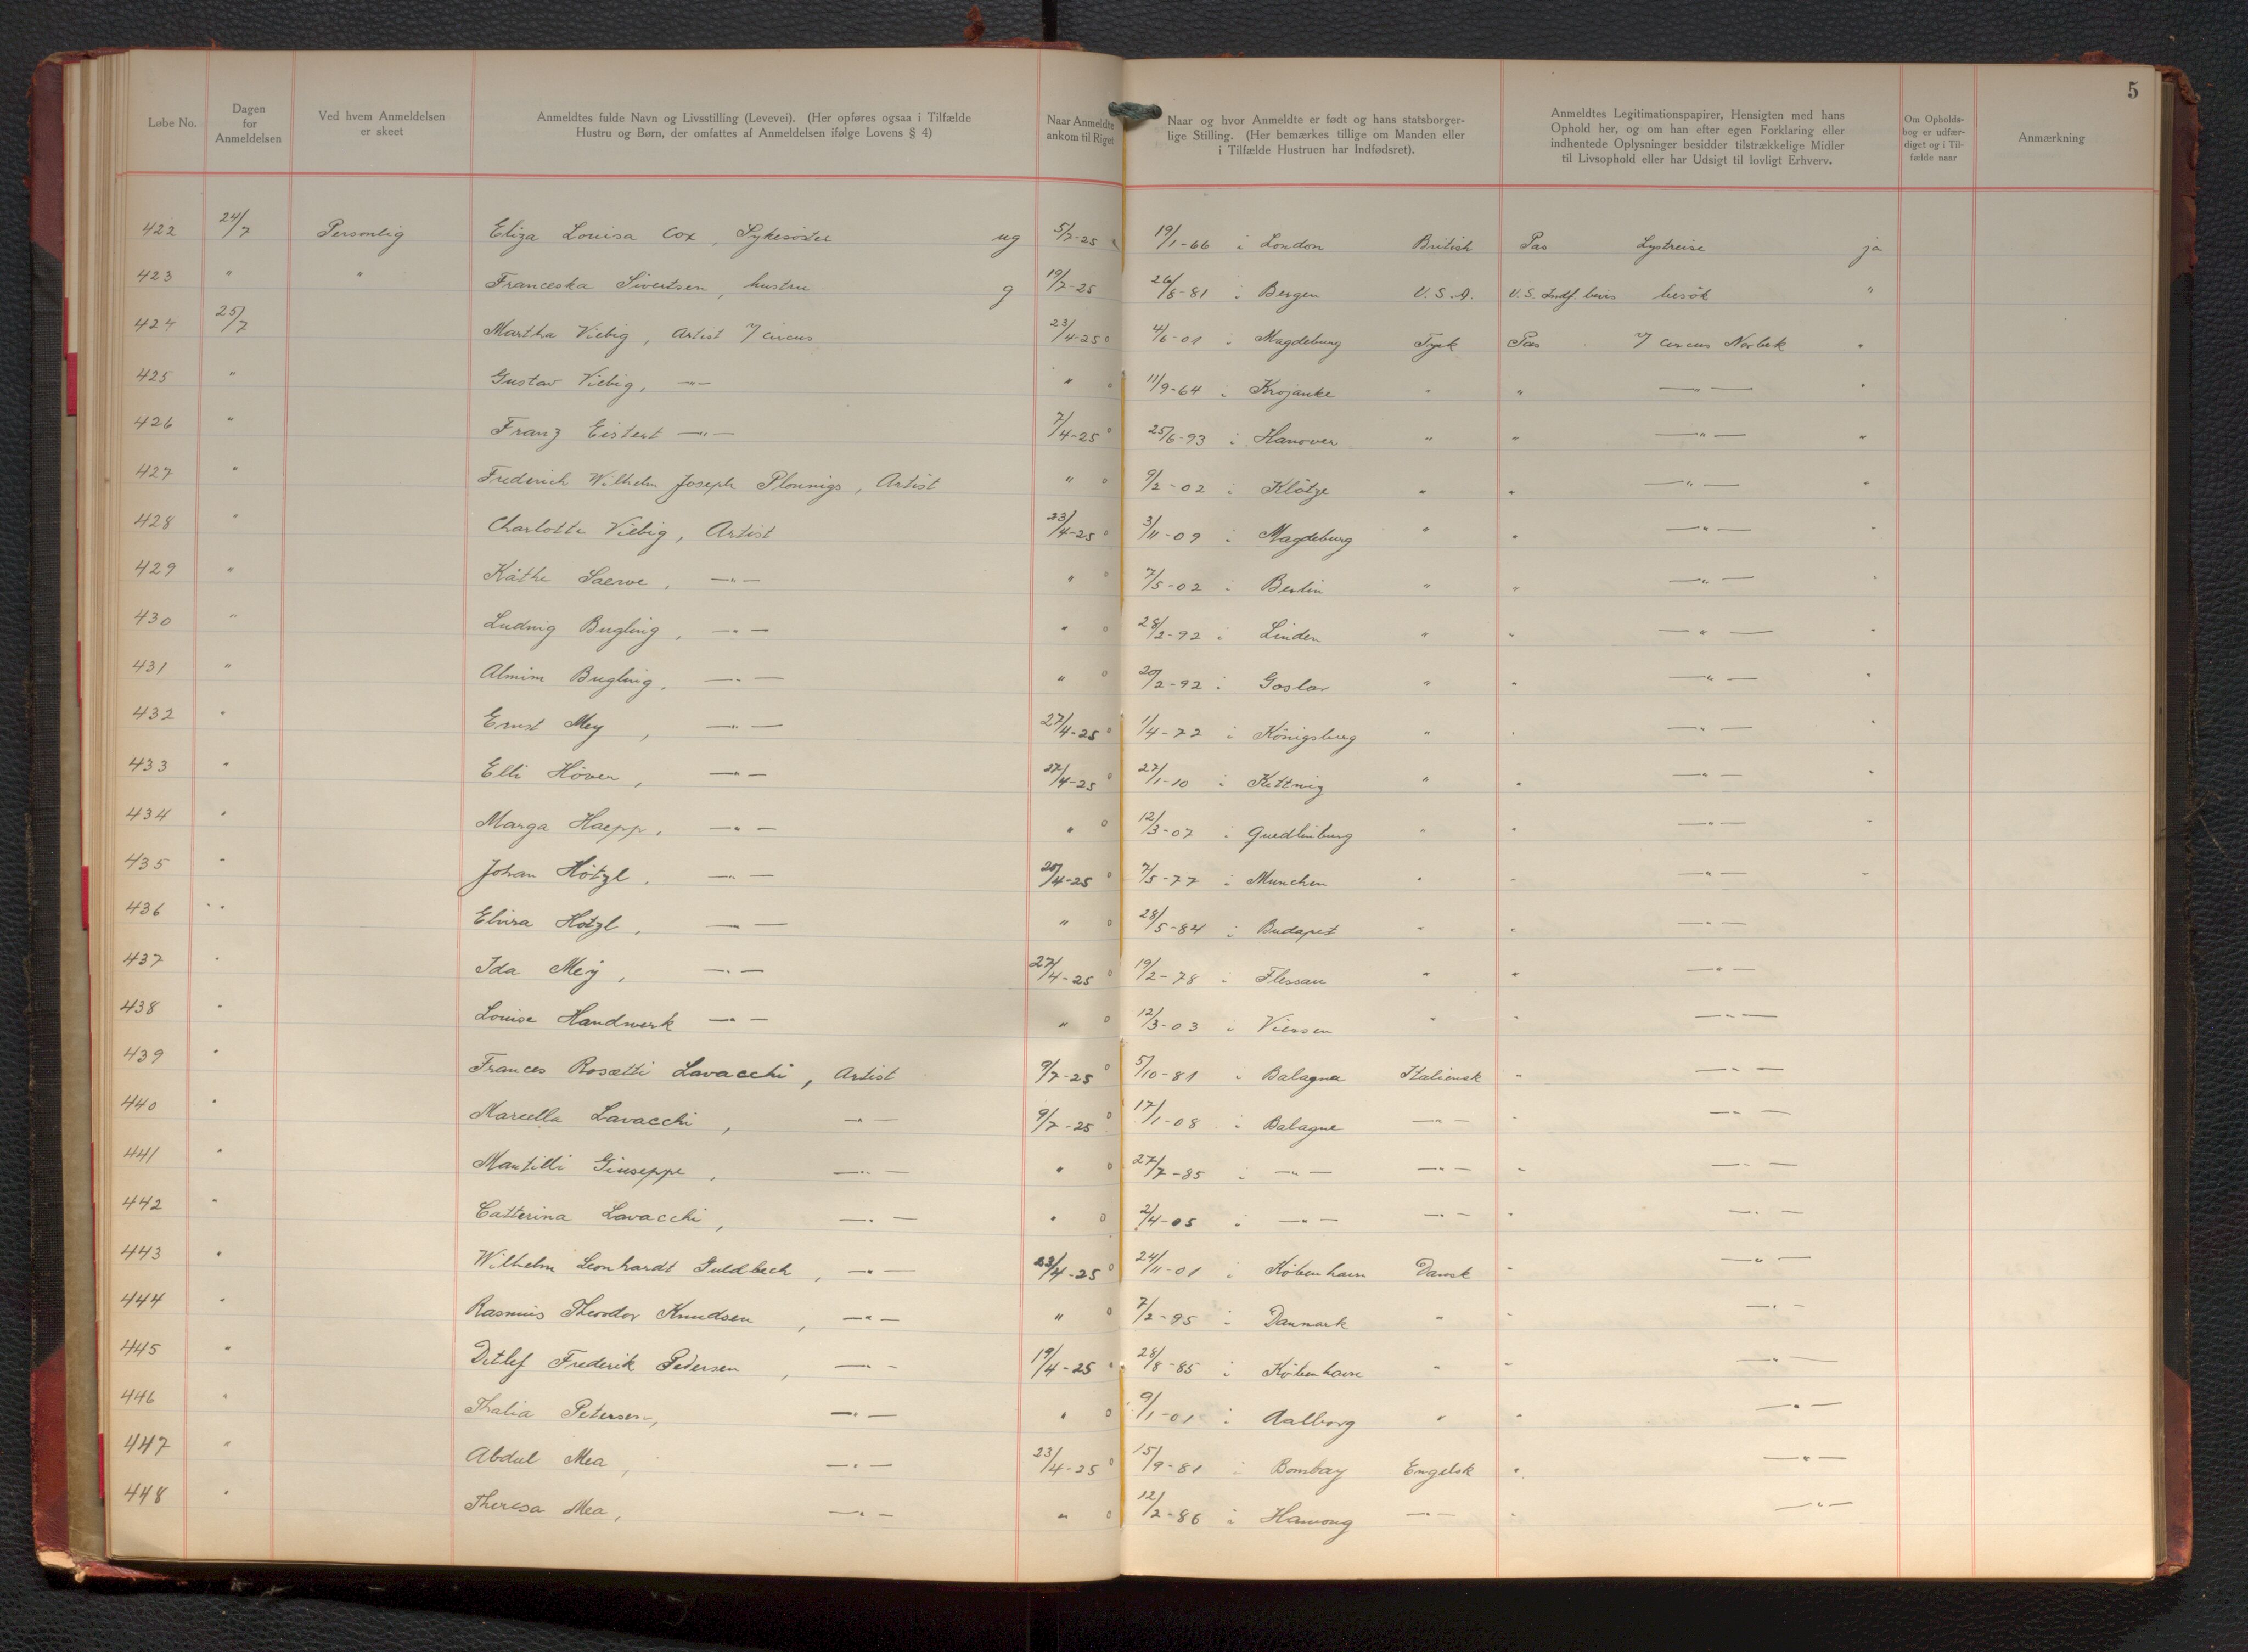 5
Løbe No. | Dagen for Anmeldelsen | Ved hvem Anmeldelsen er skeet | Anmeldtes fulde Navn og Livsstilling (Levevei). (Her opføres ogsaa i Tilfælde Hustru og Børn, der omfattes af Anmeldelsen ifølge Lovens § 4) | Naar Anmeldte ankom til Riget | Naar og hvor Anmeldte er født og hans statsborgerlige Stilling. (Her bemærkes tillige om Manden eller i Tilfælde Hustruen har Indfødsret). | Anmeldtes Legitimationspapirer, Hensigten med hans Ophold her, og om han efter egen Forklaring eller indhentede Oplysninger besidder tilstrækkelige Midler til Livsophold eller har Udsigt til lovligt Erhverv. | Om Opholdsbog er udfærdiget og i Tilfælde naar | Anmærkning
422 24/7 Personlig Eliza Louisa Cox, Sykesøster ug 5/7-25 19/1-66 i London British Pas Lystreise ja
423 " " Franceska Sivertsen, hustru g 19/7-25 26/8-81 i Bergen U.S.A. U.S. Indf. bevis besök "
424 25/7 Martha Viebig, Artist v/ circus 23/4-25 o 4/6-01 i Magdeburg Tysk Pas v/ circus Norbek "
425 " Gustav Viebig, —"— " o 11/9-64 i Krojanke " " —"— "
426 " Franz Eistert —"— 7/4-25 o 25/6-93 i Hanover " " —"— "
427 " Frederich Wilhelm Joseph Plonnigs, Artist " o 9/2-02 i Klötze " " —"— "
428 " Charlotte Viebig, Artist 23/4-25 o 3/11-09 i Magdeburg " " —"— "
429 " Käthe Saerve, —"— " o 7/5-02 i Berlin " " —"— "
430 " Ludwig Bugling, —"— " o 28/2-92 i Linden " " —"— "
431 " Bugling, —"— " o 20/2-92 i Goslar " " —"— "
432 " Ernst Mey, —"— 27/4-25 o 1/4-72 i Königsburg " " —"— "
433 " Elli Höver, —"— 27/4-25 o 27/1-10 i Kettwig " " —"— "
434 " Marga Haepp, —"— " o 12/3-07 i Quedlinburg " " —"— "
435 " Johan Hötzl, —"— 20/4-25 o 7/5-77 i Munchen " " —"— "
436 " Elvira Hötzl, —"— " o 28/5-84 i Budapest " " —"—
437 " Ida Mey, —"— 27/4-25 o 19/2-78 i Flessau " " —"—
438 " Louise Handwerk —"— " o 12/3-03 i Viersen " " —"—
439 " Frances Rosetti Lavacchi, Artist 9/7-25 o 5/10-81 i Balagna Italiensk " —"—
440 " Marcella Lavacchi, —"— 9/7-25 o 17/1-08 i Balagne —"— " —"—
441 " Mantilli Giuseppe, —"— " o 27/7-85 i —"— —"— " —"—
442 " Catterina Lavacchi, —"— " o 2/4-05 i —"— —"— " —"—
443 " Wilhelm Leonhardt Guldbech, —"— 23/4-25 o 24/11-01 i København Dansk " —"—
444 " Rasmus Theodor Knudsen, —"— " o 7/2-95 i Danmark " " —"—
445 " Ditlef Frederik Pedersen, —"— 19/4-25 28/8-85 i København " " —"—
446 " Thalia Petersen, —"— " o 9/1-01 i Aalborg " " —"—
447 " Abdul Mea, —"— 23/4-25 o 15/9-81 i Bombay Engelsk " —"—
448 " Theresa Mea, —"— " o 12/2-86 i —"— " —"—